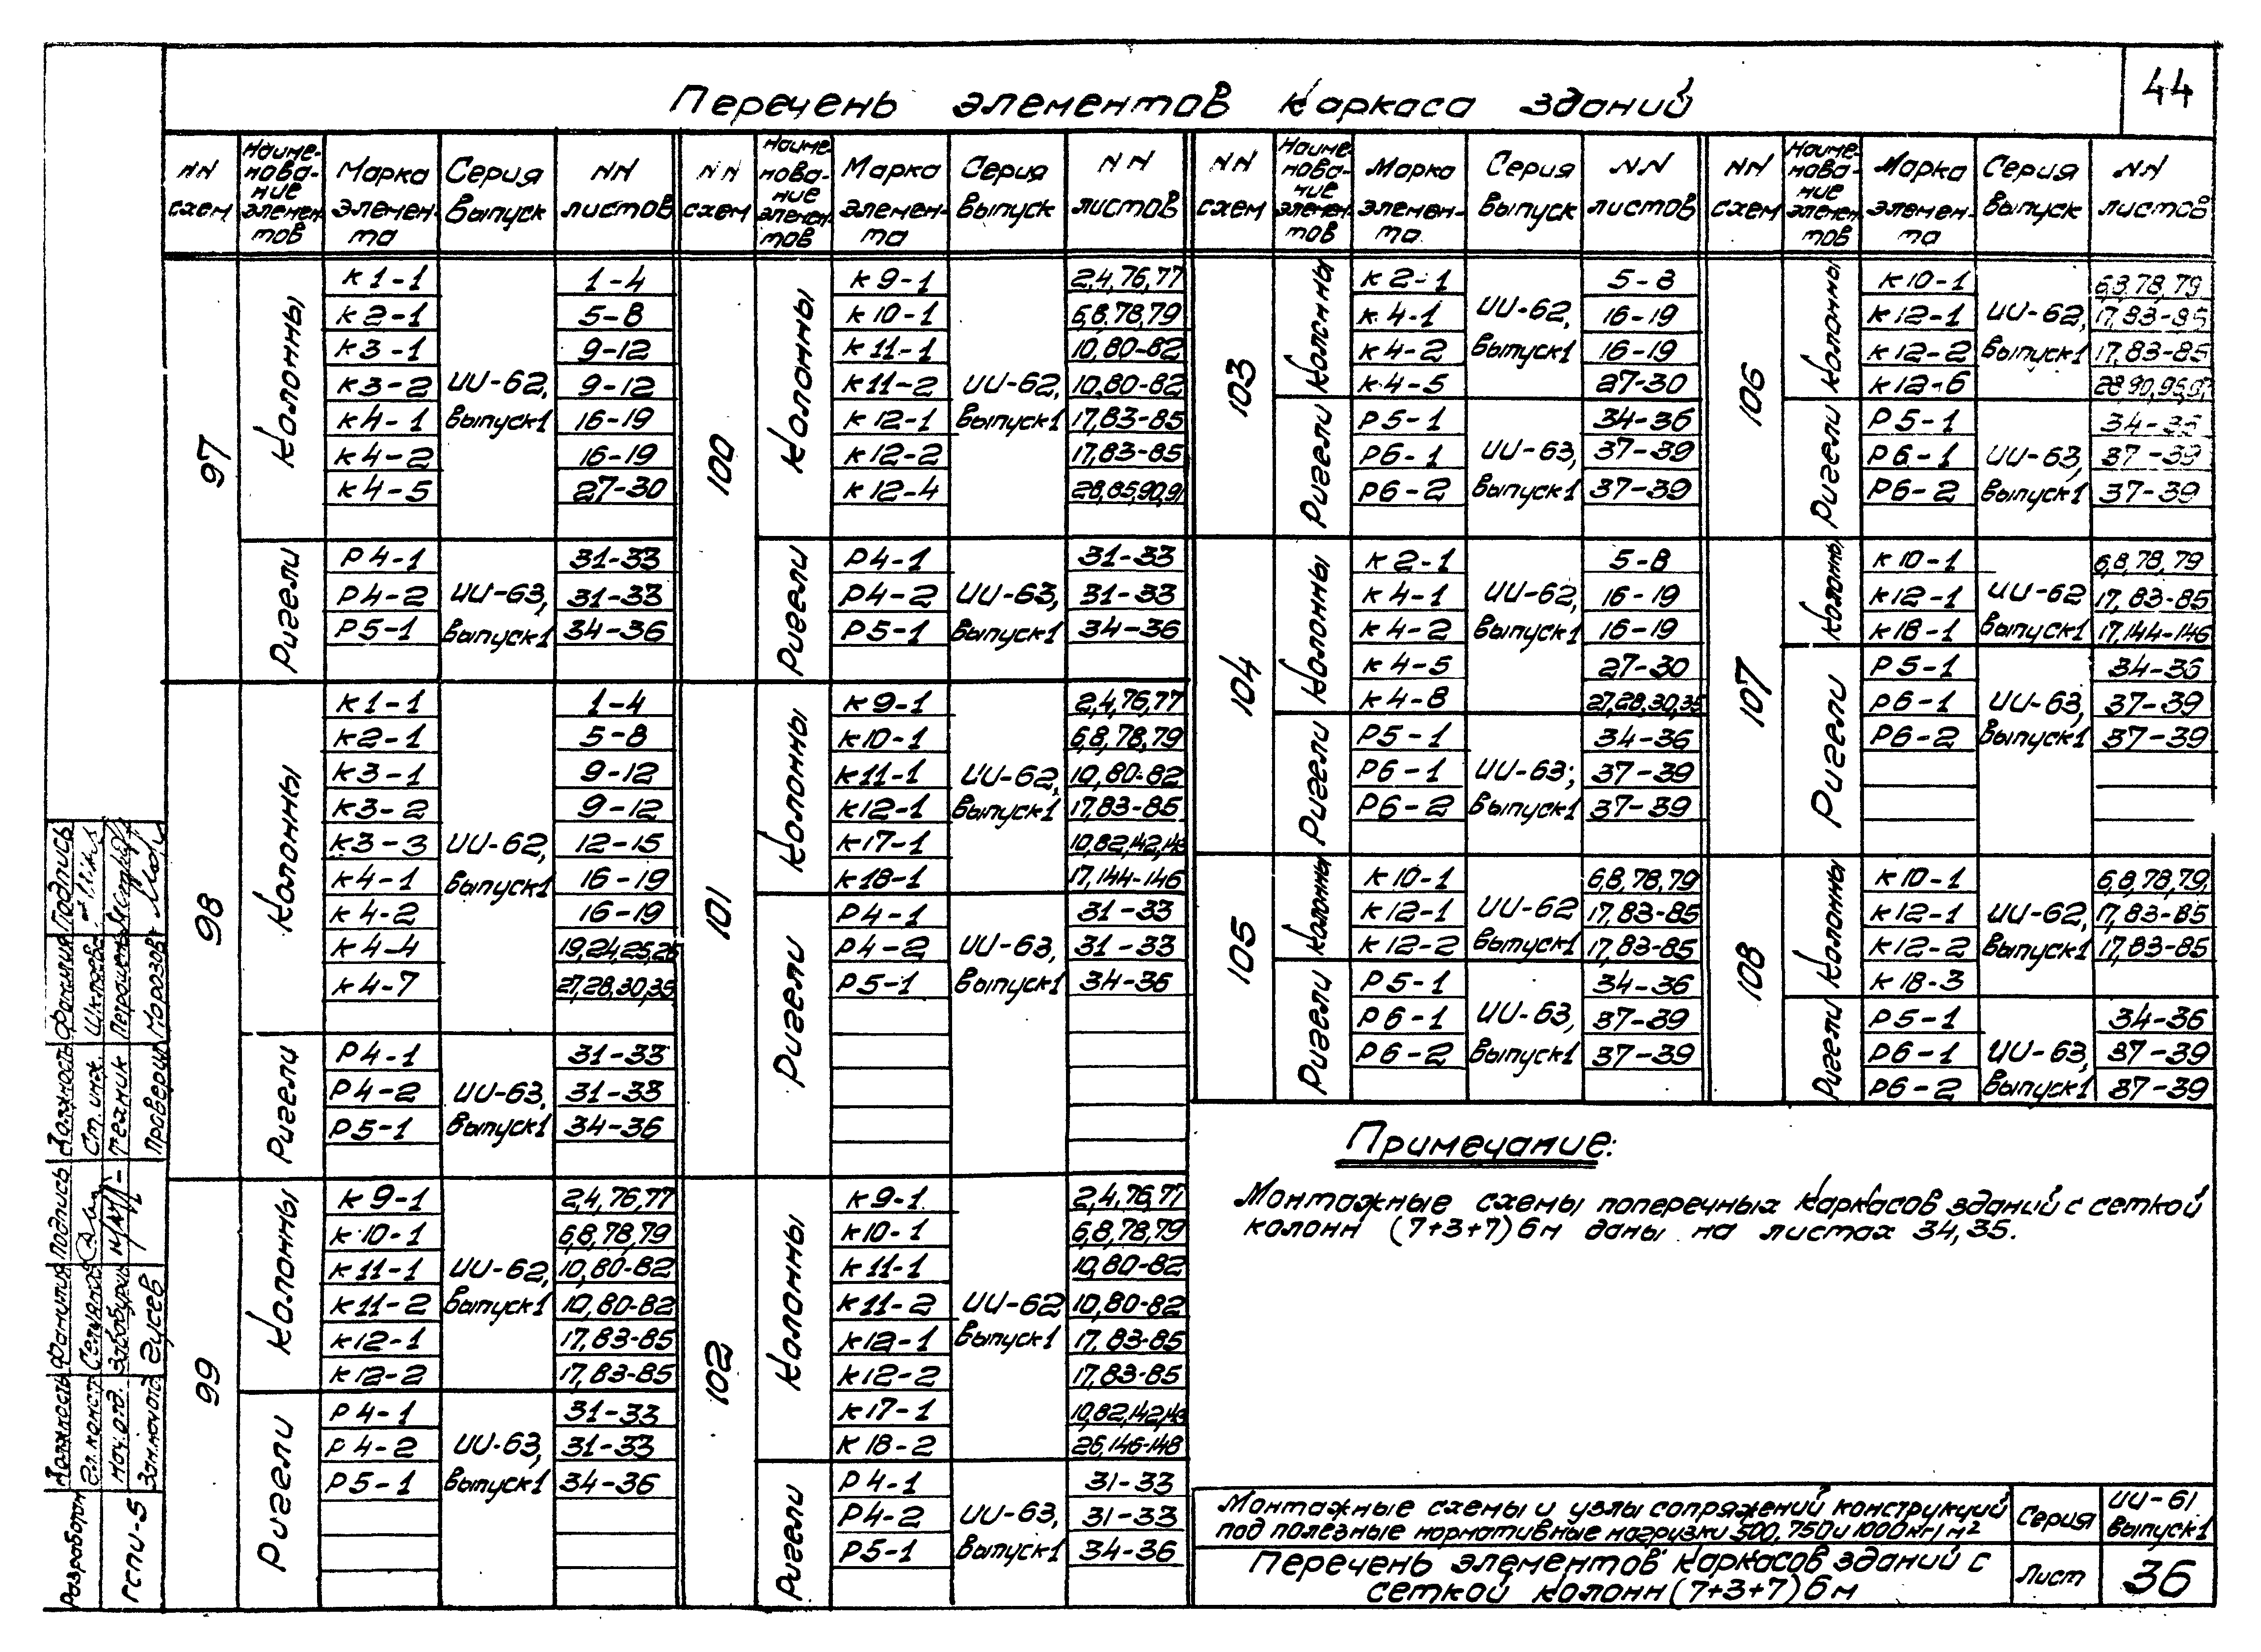 44
Перечень элементов каркаса зданий
NN схем Наиме-нова-ние элемен-тов Марка элемен-та Серия выпуск NN листов
97
Колонны
ИИ-62, выпуск 1
К1-1 1-4
К2-1 5-8
К3-1 9-12
К3-2 9-12
К4-1 16-19
К4-2 16-19
К4-5 27-30
Ригели
ИИ-63, выпуск 1
Р4-1 31-33
Р4-2 31-33
Р5-1 34-36
98
Колонны
ИИ-62, выпуск 1
К1-1 1-4
К2-1 5-8
К3-1 9-12
К3-2 9-12
К3-3 12-15
К4-1 16-19
К4-2 16-19
К4-4 19,24,25,26
К4-7 27,28,30,35
Ригели
ИИ-63, выпуск 1
Р4-1 31-33
Р4-2 31-33
Р5-1 34-36
99
Колонны
ИИ-62, выпуск 1
К9-1 2,4,76,77
К10-1 6,8,78,79
К11-1 10,80-82
К11-2 10,80-82
К12-1 17,83-85
К12-2 17,83-85
Ригели
ИИ-63, выпуск 1
Р4-1 31-33
Р4-2 31-33
Р5-1 34-36
NN схем Наиме-нова-ние элемен-тов Марка элемен-та Серия выпуск NN листов
100
Колонны
ИИ-62, выпуск 1
К9-1 2,4,76,77
К10-1 6,8,78,79
К11-1 10,80-82
К11-2 10,80-82
К12-1 17,83-85
К12-2 17,83-85
К12-4 28,85,90,91
Ригели
ИИ-63, выпуск 1
Р4-1 31-33
Р4-2 31-33
Р5-1 34-36
101
Колонны
ИИ-62, выпуск 1
К9-1 2,4,76,77
К10-1 6,8,78,79
К11-1 10,80-82
К12-1 17,83-85
К17-1 10,82,142,143
К18-1 17,144-146
Ригели
ИИ-63, выпуск 1
Р4-1 31-33
Р4-2 31-33
Р5-1 34-36
102
Колонны
ИИ-62 выпуск 1
К9-1 2,4,76,77
К10-1 6,8,78,79
К11-1 10,80-82
К11-2 10,80-82
К12-1 17,83-85
К12-2 17,83-85
К17-1 10,82,142,143
К18-2 26,146-148
Ригели
ИИ-63, выпуск 1
Р4-1 31-33
Р4-2 31-33
Р5-1 34-36
NN схем Наиме-нова-ние элемен-тов Марка элемен-та Серия выпуск NN листов
103
Колонны
ИИ-62, выпуск 1
К2-1 5-8
К4-1 16-19
К4-2 16-19
К4-5 27-30
Ригели
ИИ-63, выпуск 1
Р5-1 34-36
Р6-1 37-39
Р6-2 37-39
104
Колонны
ИИ-62, выпуск 1
К2-1 5-8
К4-1 16-19
К4-2 16-19
К4-5 27-30
К4-8 27,28,30,35
Ригели
ИИ-63, выпуск 1
Р5-1 34-36
Р6-1 37-39
Р6-2 37-39
105
Колонны
ИИ-62 выпуск 1
К10-1 6,8,78,79
К12-1 17,83-85
К12-2 17,83-85
Ригели
ИИ-63, выпуск 1
Р5-1 34-36
Р6-1 37-39
Р6-2 37-39
NN схем Наиме-нова-ние элемен-тов Марка элемен-та Серия выпуск NN листов
106
Колонны
ИИ-62, выпуск 1
К10-1 6,8,78,79
К12-1 17,83-85
К12-2 17,83-85
К12-6
Ригели
ИИ-63, выпуск 1
Р5-1 34-36
Р6-1 37-39
Р6-2 37-39
107
Колонны
ИИ-62 выпуск 1
К10-1 6,8,78,79
К12-1 17,83-85
К18-1 17,144-146
Ригели
ИИ-63, выпуск 1
Р5-1 34-36
Р6-1 37-39
Р6-2 37-39
108
Колонны
ИИ-62, выпуск 1
К10-1 6,8,78,79,
К12-1 17,83-85
К12-2 17,83-85
К18-3
Ригели
ИИ-63, выпуск 1
Р5-1 34-36
Р6-1 37-39
Р6-2 37-39
Примечание:
Монтажные схемы поперечных каркасов зданий с сеткой
колонн (7+3+7)6м даны на листах 34,35.
Монтажные схемы и узлы сопряжений конструкций
под полезные нормативные нагрузки 500, 750 и 1000 кг/м2
Серия ИИ-61 выпуск 1
Перечень элементов каркасов зданий с
сеткой колонн (7+3+7)6м
Лист 36
Должность Фамилия Подпись
Ст. инж. Шклаева
Техник
Проверил Морозов
Должность Фамилия Подпись
Гл. констр
Нач. отд.
Зам.нач.отд Гусев
Разработан
ГСПИ-5